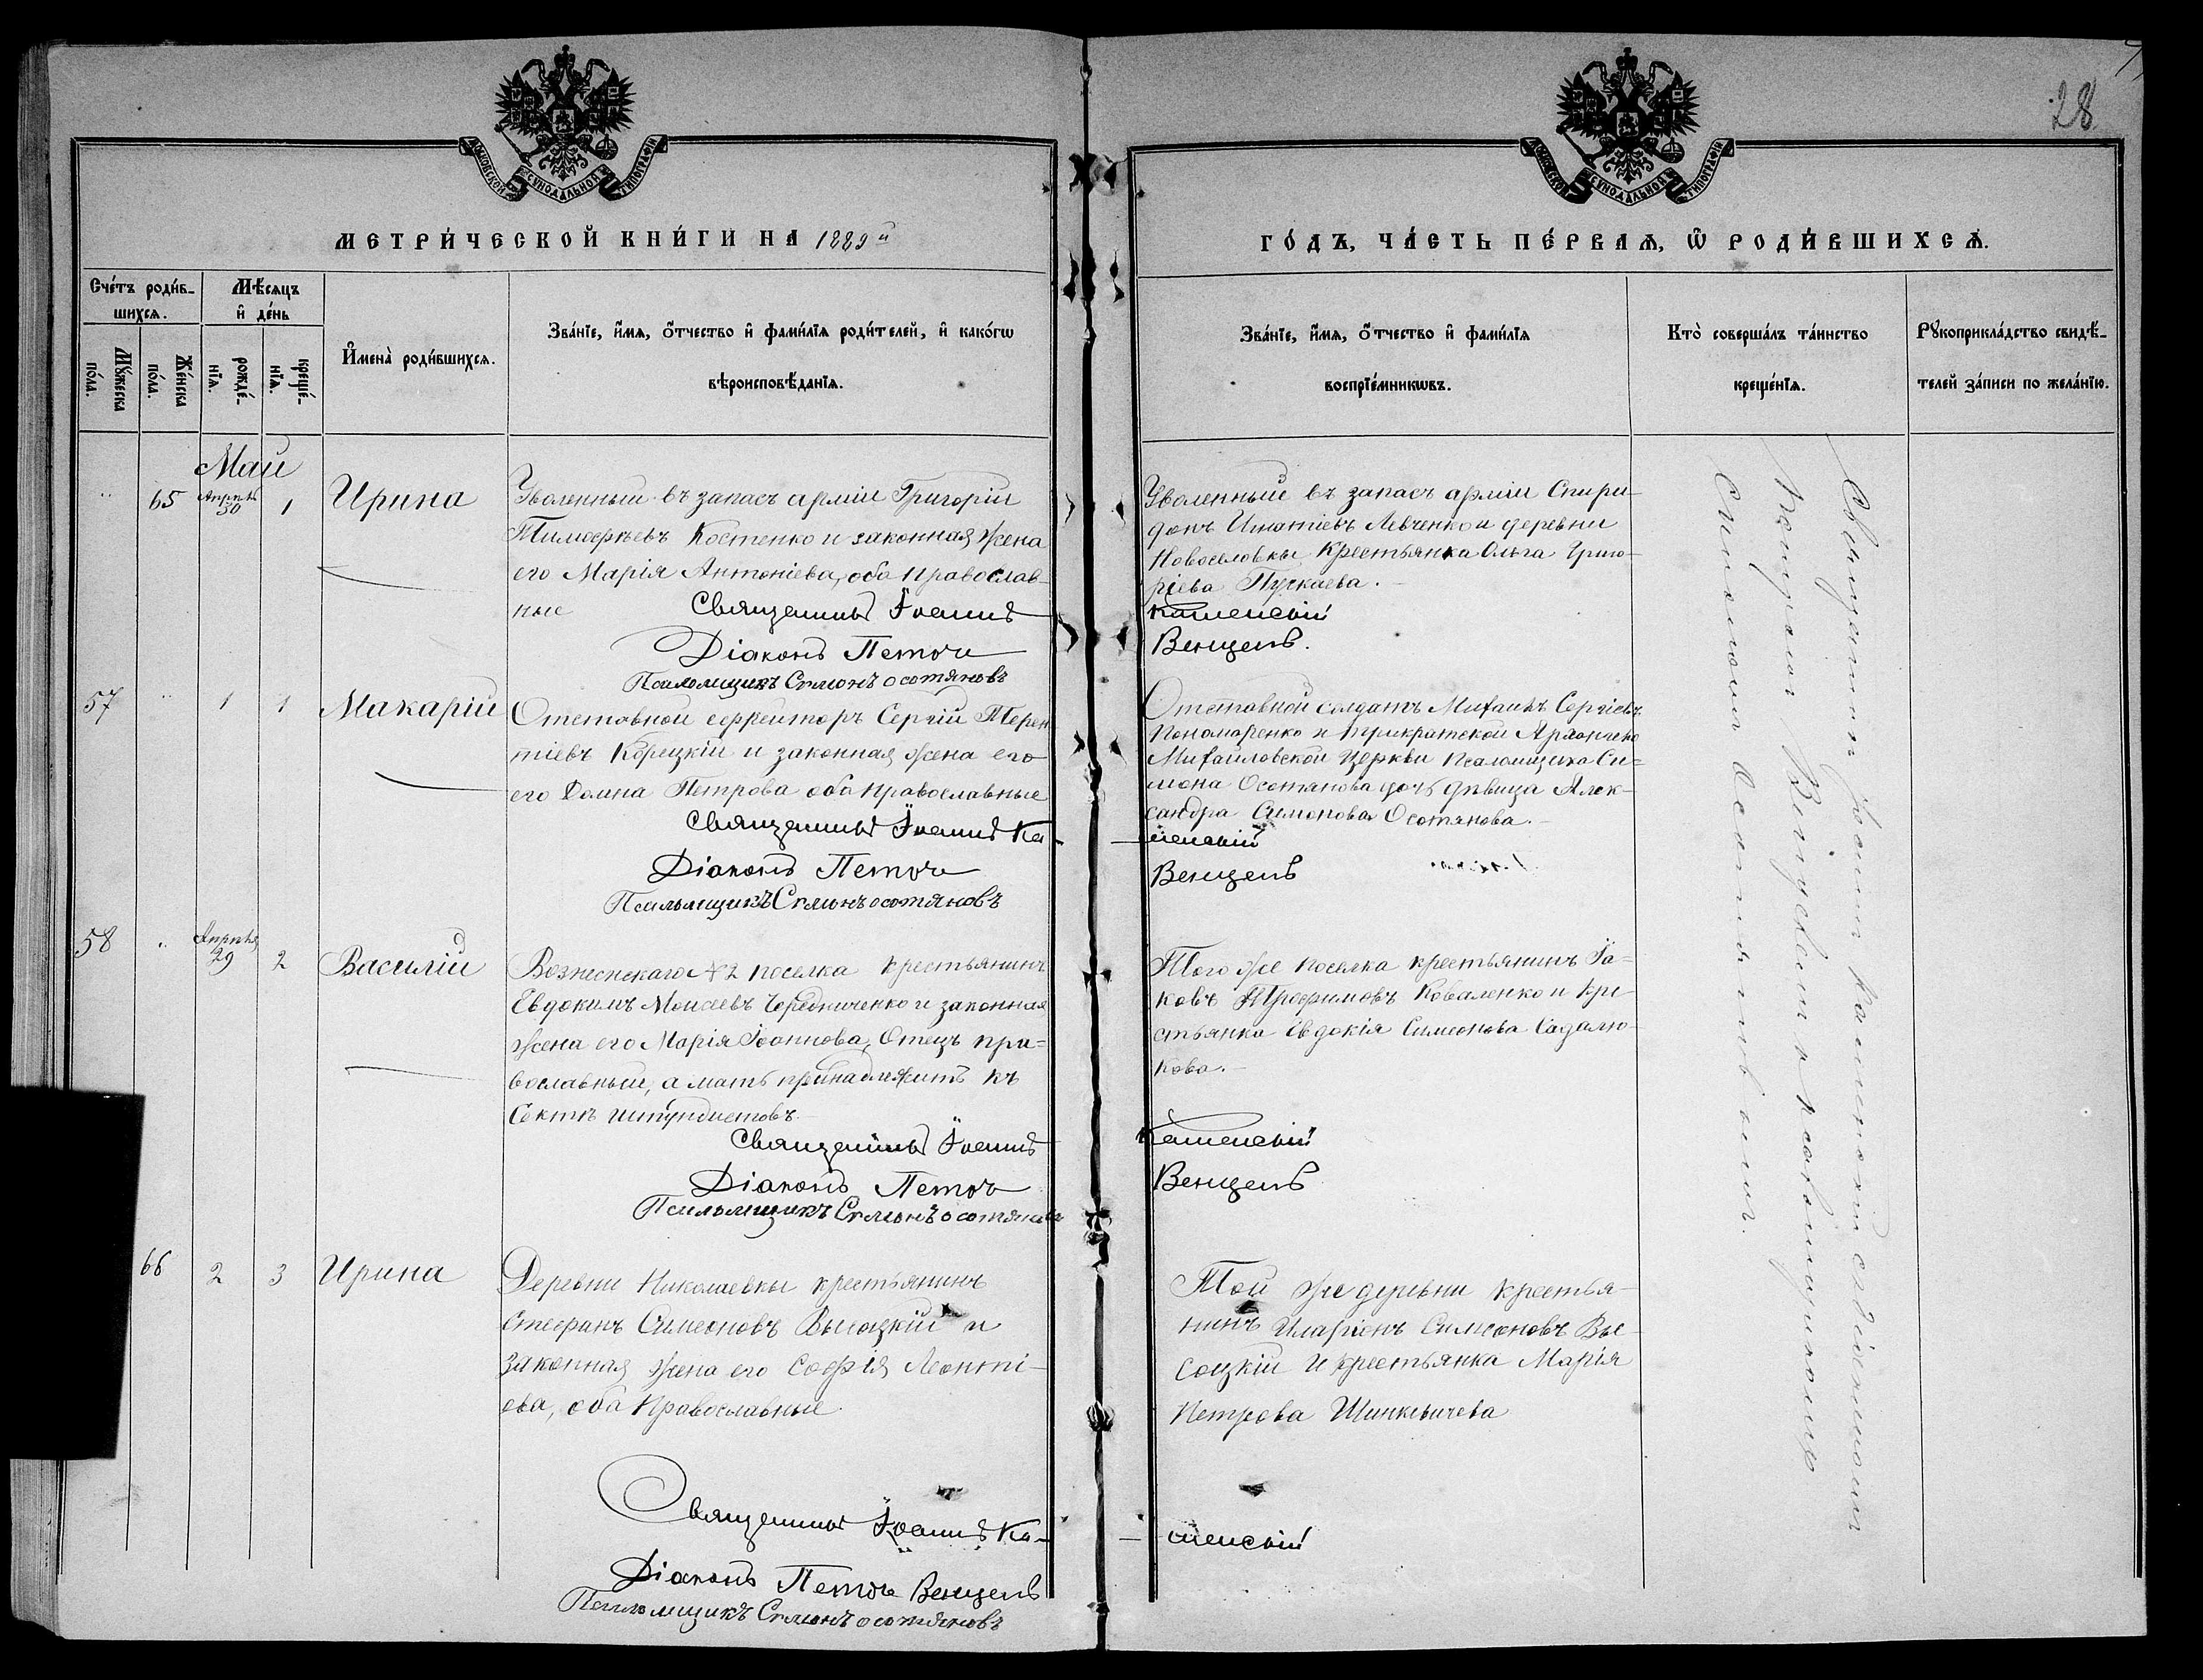 28
МОСКОВСКОЙ СУНОДАЛЬНОЙ ТИПОГРАФІИ
МОСКОВСКОЙ СУНОДАЛЬНОЙ ТИПОГРАФІИ
МЕТРИ́ЧЕСКОЙ КНИ́ГИ НА 1889й
ГО́ДЪ, ЧА́СТЬ ПЕ́РВАѦ, Ѡ҆ РОДИ́ВШИХСѦ.
Сче́тъ роди́в-
шихсѧ.
Мѣ́сѧцъ
и҆ де́нь
Мꙋ́жеска
по́ла.
Же́нска
по́ла.
рожде́-
нїѧ.
креще́-
нїѧ.
И҆мена̀ роди́вшихсѧ.
Зва́нїе, и҆́мѧ, ѻ҆́тчество и҆ фами́лїѧ роди́телей, и҆ како́гѡ
вѣроисповѣ́данїѧ.
Зва́нїе, и҆́мѧ, ѻ҆́тчество и҆ фами́лїѧ
воспрїе́мникѡвъ.
Кто̀ соверша́лъ та́инство
креще́нїѧ.
Рꙋкоприкла́дство свидѣ́-
телей за́писи по жела́нїю.
Май
65 Апрѣля 30 1 Ирина
Уволенный въ запасъ арміи Григорій
Тимофѣевъ Костенко и законная жена
его Марія Антоніева, оба православ-
ные
Священникъ Іоаннъ
Діаконъ Петръ
Псаломщикъ Симонъ Осотяновъ
Уволенный въ запасъ арміи Спири-
донъ Игнатіевъ Левченко и деревни
Новоселовки крестьянка Ольга Григо-
ріева Пускаева.
Каменскій
Венцель.
57 " 1 1 Макарій
Отставной ефрейторъ Сергій Терен
тіевъ Корецкій и законная жена его
его Домна Петрова оба православные
Священникъ Іоаннъ Ка-
Діаконъ Петръ
Псаломщикъ Симонъ Осотяновъ
Отставной солдатъ Михаилъ Сергіевъ
Пономаренко и Трикратской Архангело
Михайловской церкви псаломщика Си-
мона Осотянова дочь дѣвица Алек-
сандра Симонова Осотянова.
менскій
Венцель
58 " Апрѣля 29 2 Василій
Вознесенскаго №2 поселка крестьянинъ
Евдокимъ Моисеевъ Чередниченко и законная
жена его Марія Іоаннова, Отецъ пра-
вославный, а мать принадлежитъ къ
Сектѣ штундистовъ
Священникъ Іоаннъ
Діаконъ Петръ
Псаломщикъ Симонъ Осотяновъ
Того же поселка крестьянинъ Іа-
ковъ Трофимовъ Коваленко и кре
стьянка Евдокія Симеонова Садалю-
кова.
Каменскій
Венцель
66 2 3 Ирина
Деревни Николаевки крестьянинъ
Стефанъ Симеоновъ Высоцкій и
законная жена его Софія Леонті-
ева, оба Православные.
Священникъ Іоаннъ Ка-
Діаконъ Петръ Венцель
Псаломщикъ Симонъ Осотяновъ
Той же деревни крестья-
нинъ Иларіонъ Симеоновъ Вы-
соцкій и крестьянка Марія
Петрова Шинкевичева
менскій
Священникъ Іоаннъ Каменскій съ діакономъ
Петромъ Венцелемъ и псаломщикомъ
Симономъ Осотяновымъ.